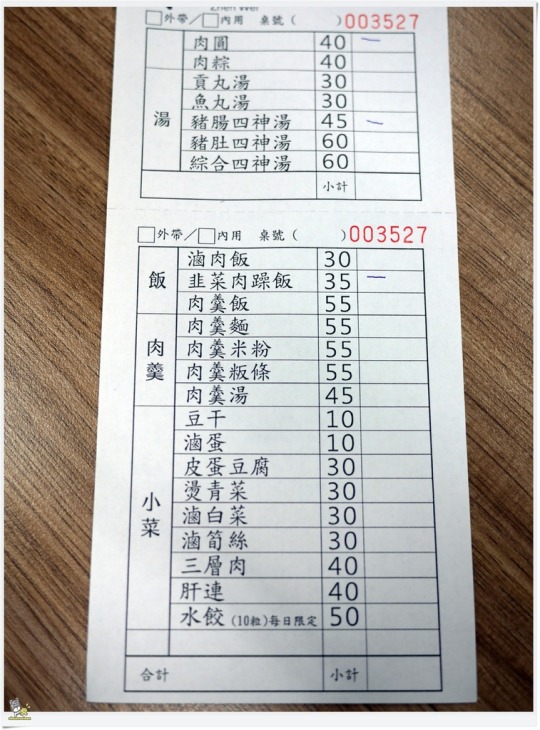 Zhen Wei
□外帶／□內用 桌號（ ）003527
肉圓 40 一
肉粽 40
湯
貢丸湯 30
魚丸湯 30
豬腸四神湯 45 一
豬肚四神湯 60
綜合四神湯 60
小計
□外帶／□內用 桌號（ ）003527
飯
滷肉飯 30
韭菜肉躁飯 35 一
肉羹飯 55
肉羹
肉羹麵 55
肉羹米粉 55
肉羹粄條 55
肉羹湯 45
小菜
豆干 10
滷蛋 10
皮蛋豆腐 30
燙青菜 30
滷白菜 30
滷筍絲 30
三層肉 40
肝連 40
水餃(10粒)每日限定 50
合計 小計